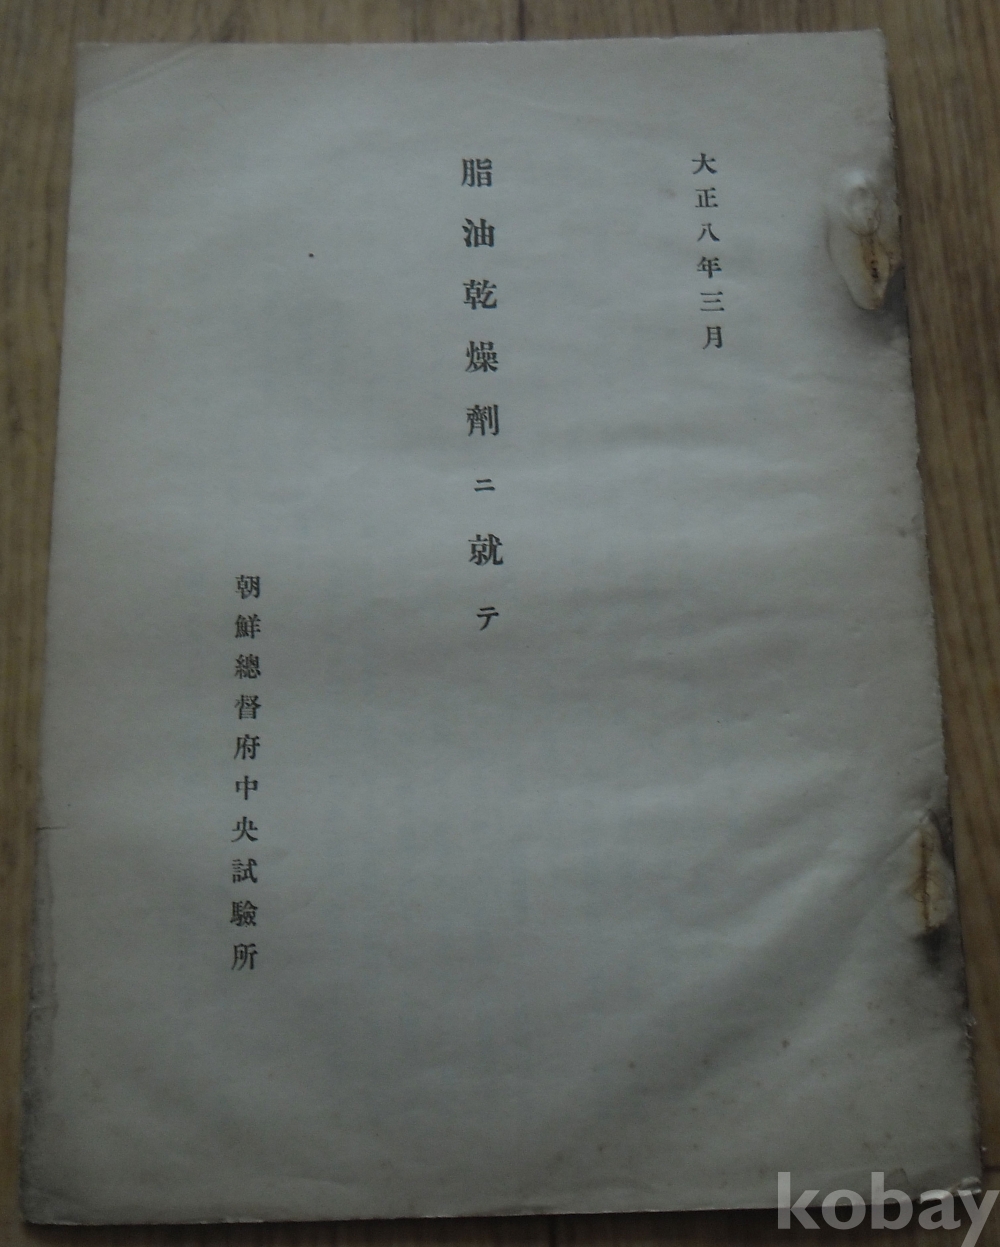 大正八年三月
脂油乾燥劑ニ就テ
朝鮮總督府中央試驗所
kobay